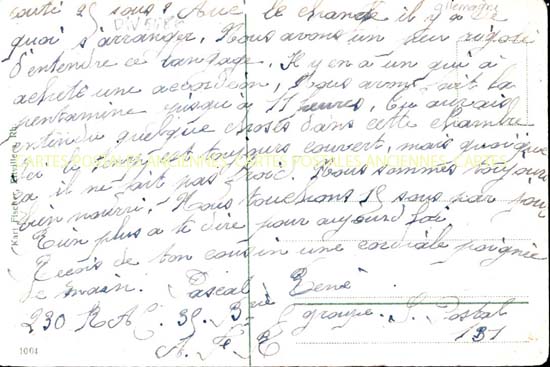 allemagne
sorti 25 sous ? Avec le change il y a de
quoi s'arranger. Nous avons un peu rigolé
d'entendre ce langage. Il y en a un qui a
acheté une accordéon, nous avons fait la
jusqu'à 11 heures. Tu aurais
entendu quelque chose dans cette chambre
le temps est toujours couvert, mais quoique
ça il ne fait pas froid. Nous sommes toujours
bien nourri. Nous touchons 15 sous par jour
Rien plus a te dire pour aujourd'hui.
Recois de ton cousin une cordiale poignée
de main. Pascal René
230 R.A.C. 35. Bie
groupe. S. Postal
A. F. R 131
Karl Fischer,
1004
CARTES POSTALES ANCIENNES CARTES POSTALES ANCIENNES